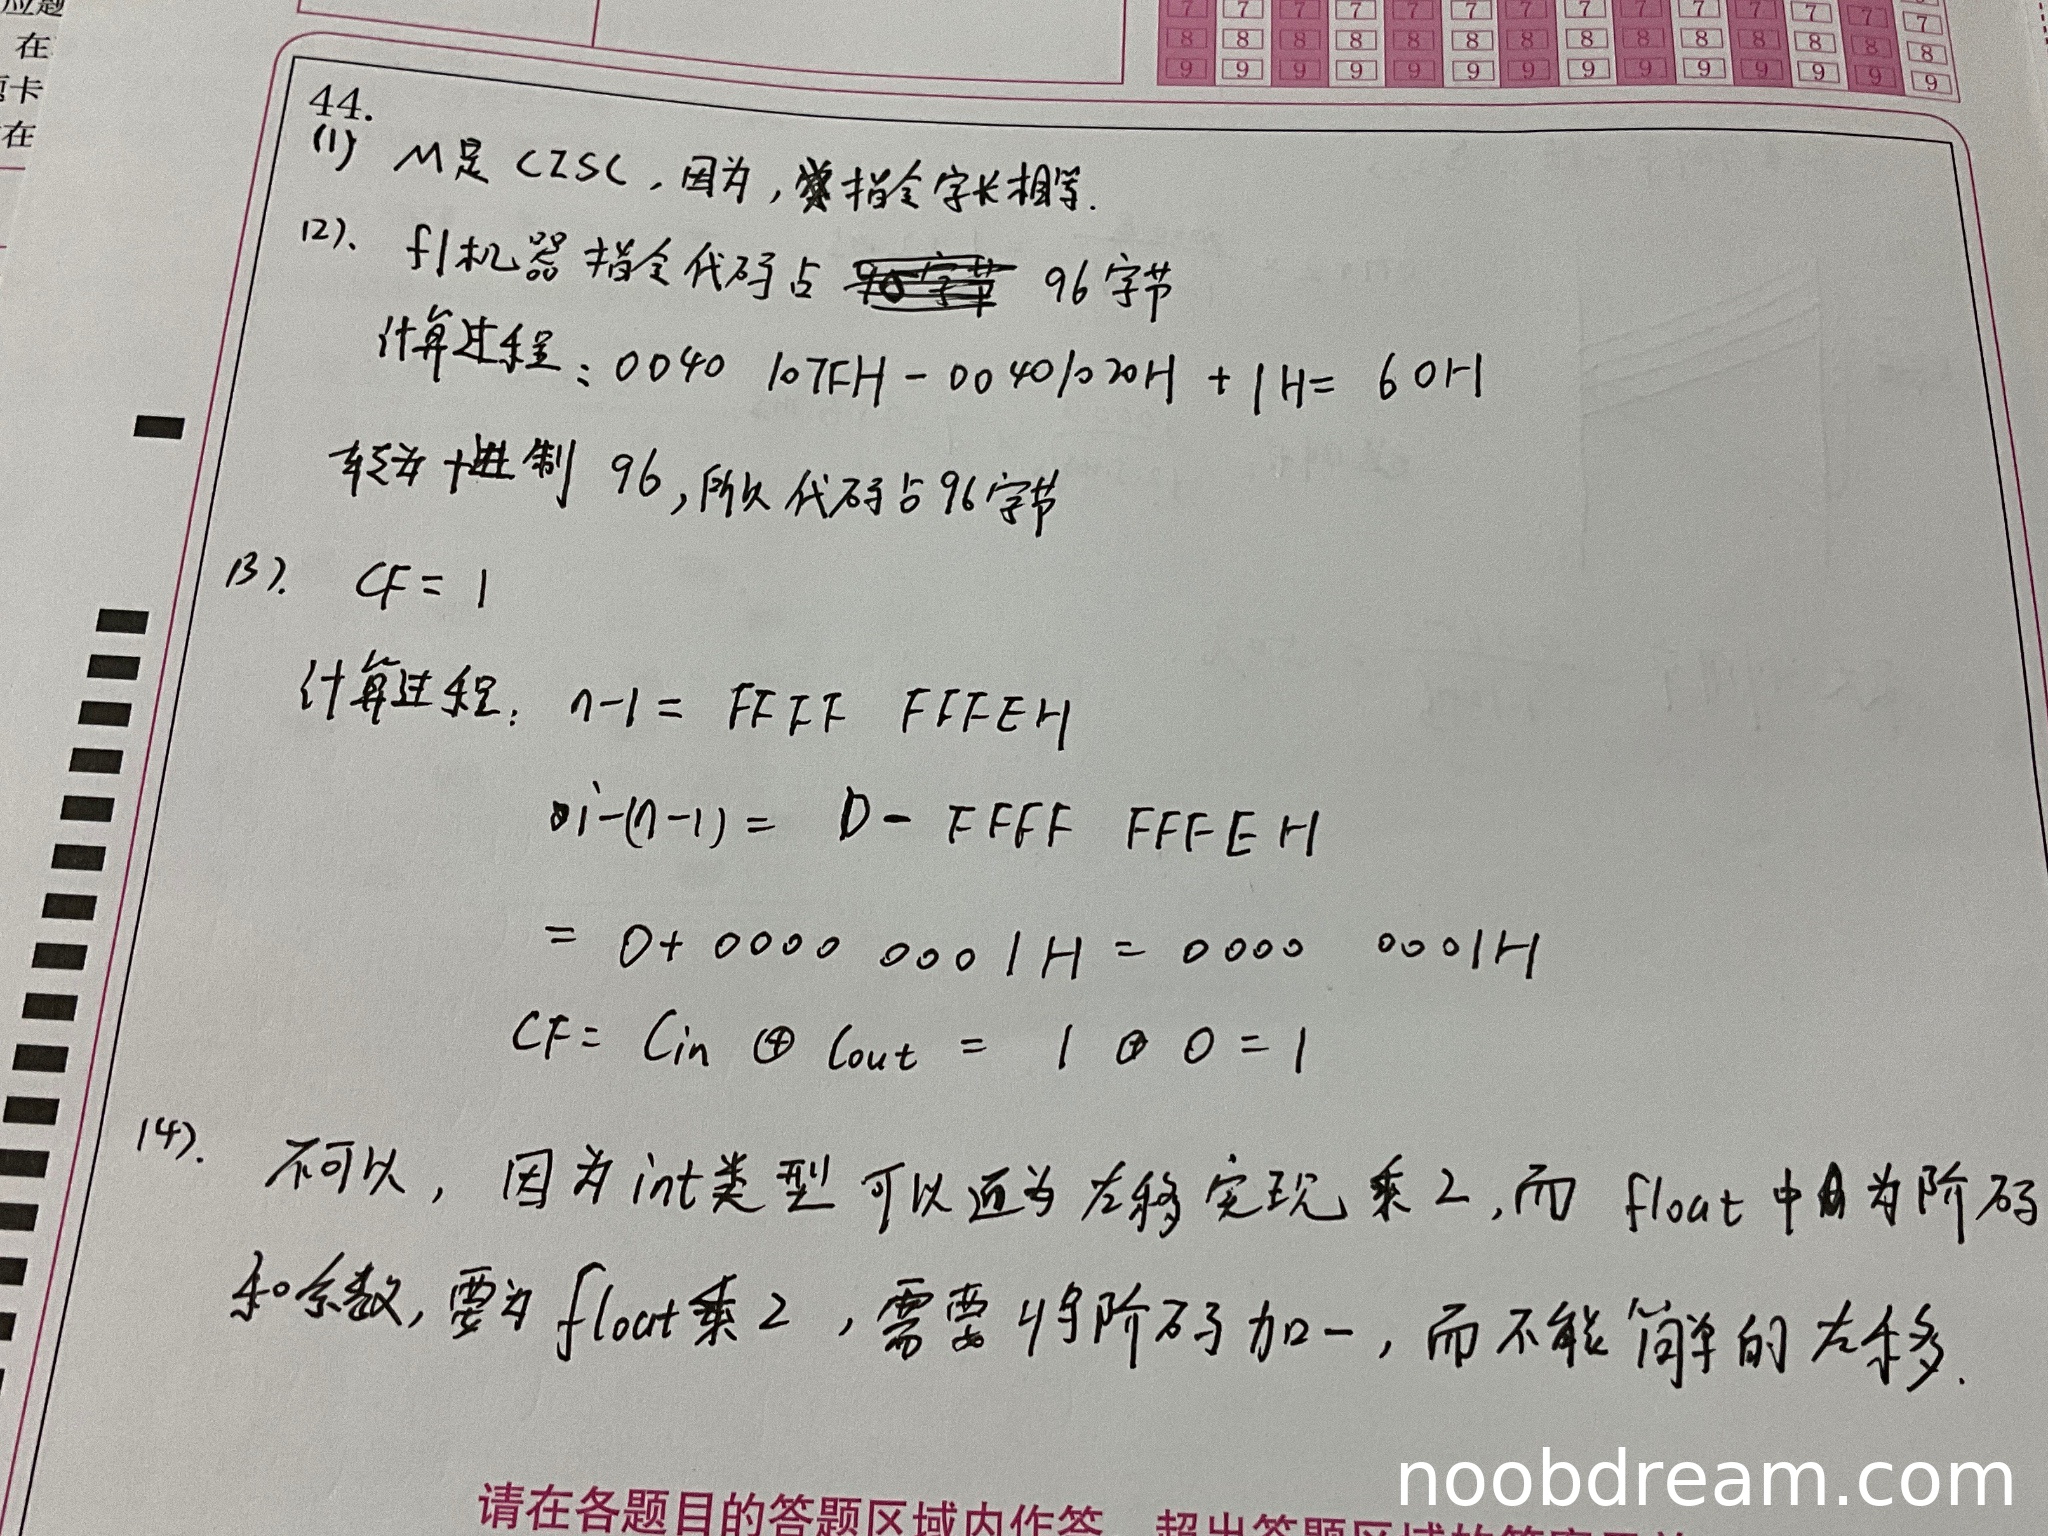 应题
在
题卡
在
7 7 7 7 7 7 7 7 7 7 7 7 7 7
8 8 8 8 8 8 8 8 8 8 8 8 8 8
9 9 9 9 9 9 9 9 9 9 9 9 9 9
44.
(1) M是 CISC，因为，指令字长相等.
(2). f1机器指令代码占 96字节
计算过程：0040 107FH - 0040 1020H + 1H = 60H
转为十进制 96，所以代码占96字节
(3). CF = 1
计算过程： n-1 = FFFF FFFEH
i-(n-1) = 0 - FFFF FFFEH
= 0+ 0000 0001H = 0000 0001H
CF = Cin ⊕ Cout = 1 ⊕ 0 = 1
(4). 不可以，因为int类型可以通过左移实现乘2，而 float中因为阶码
和尾数，要为float乘2，需要将阶码加一，而不能简单的左移.
noobdream.com
请在各题目的答题区域内作答，超出答题区域的答案无效